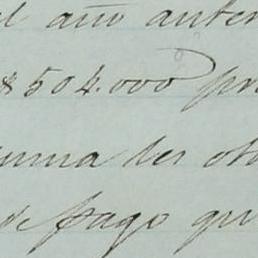 l año anter
$504.000 pr
uma les ob
de pago qu